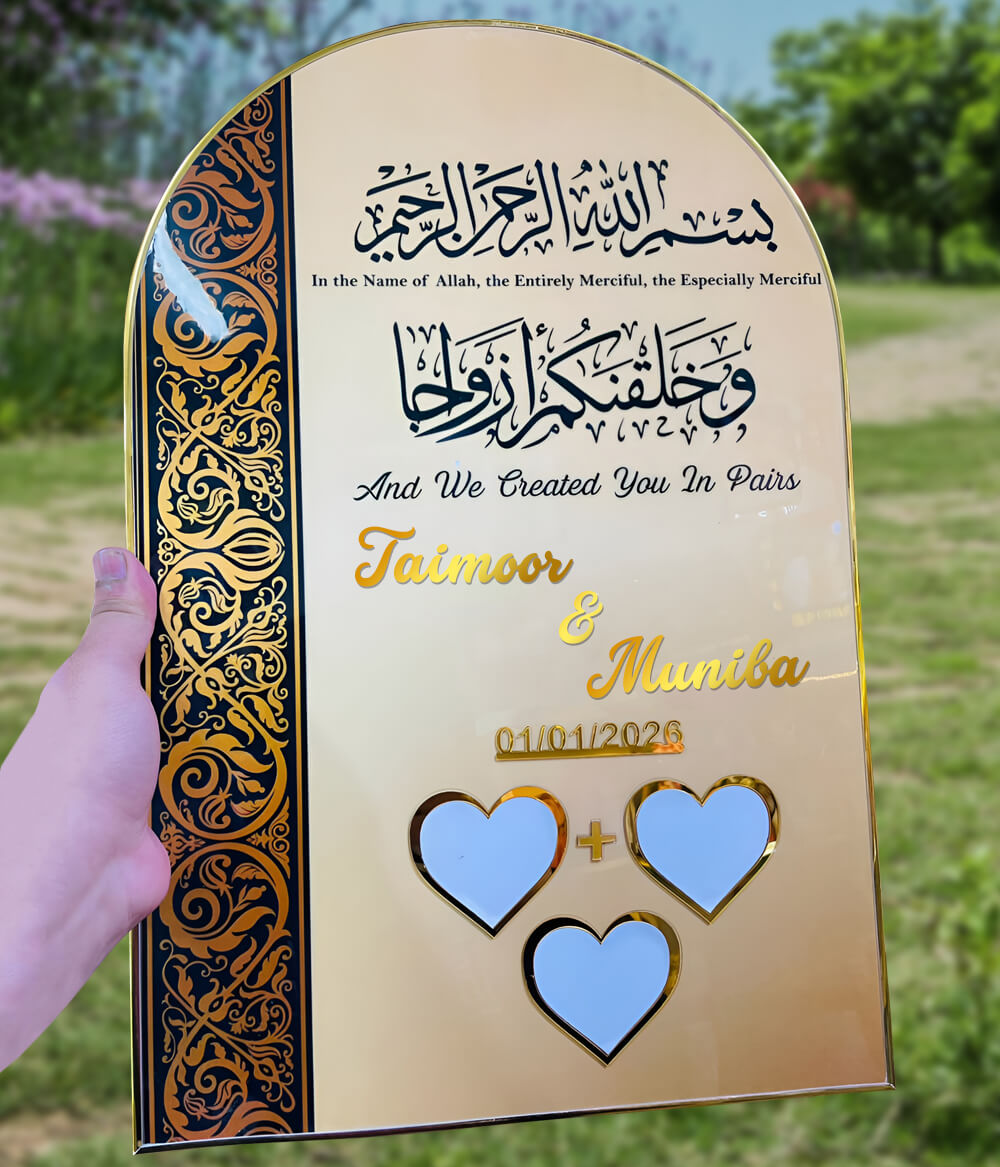 بِسْمِ اللَّهِ الرَّحْمَٰنِ الرَّحِيمِ
In the Name of Allah, the Entirely Merciful, the Especially Merciful
وَخَلَقْنَكُمْ أَزْوَاجًا
And We Created You In Pairs
Taimoor
&
Muniba
01/01/2026
+